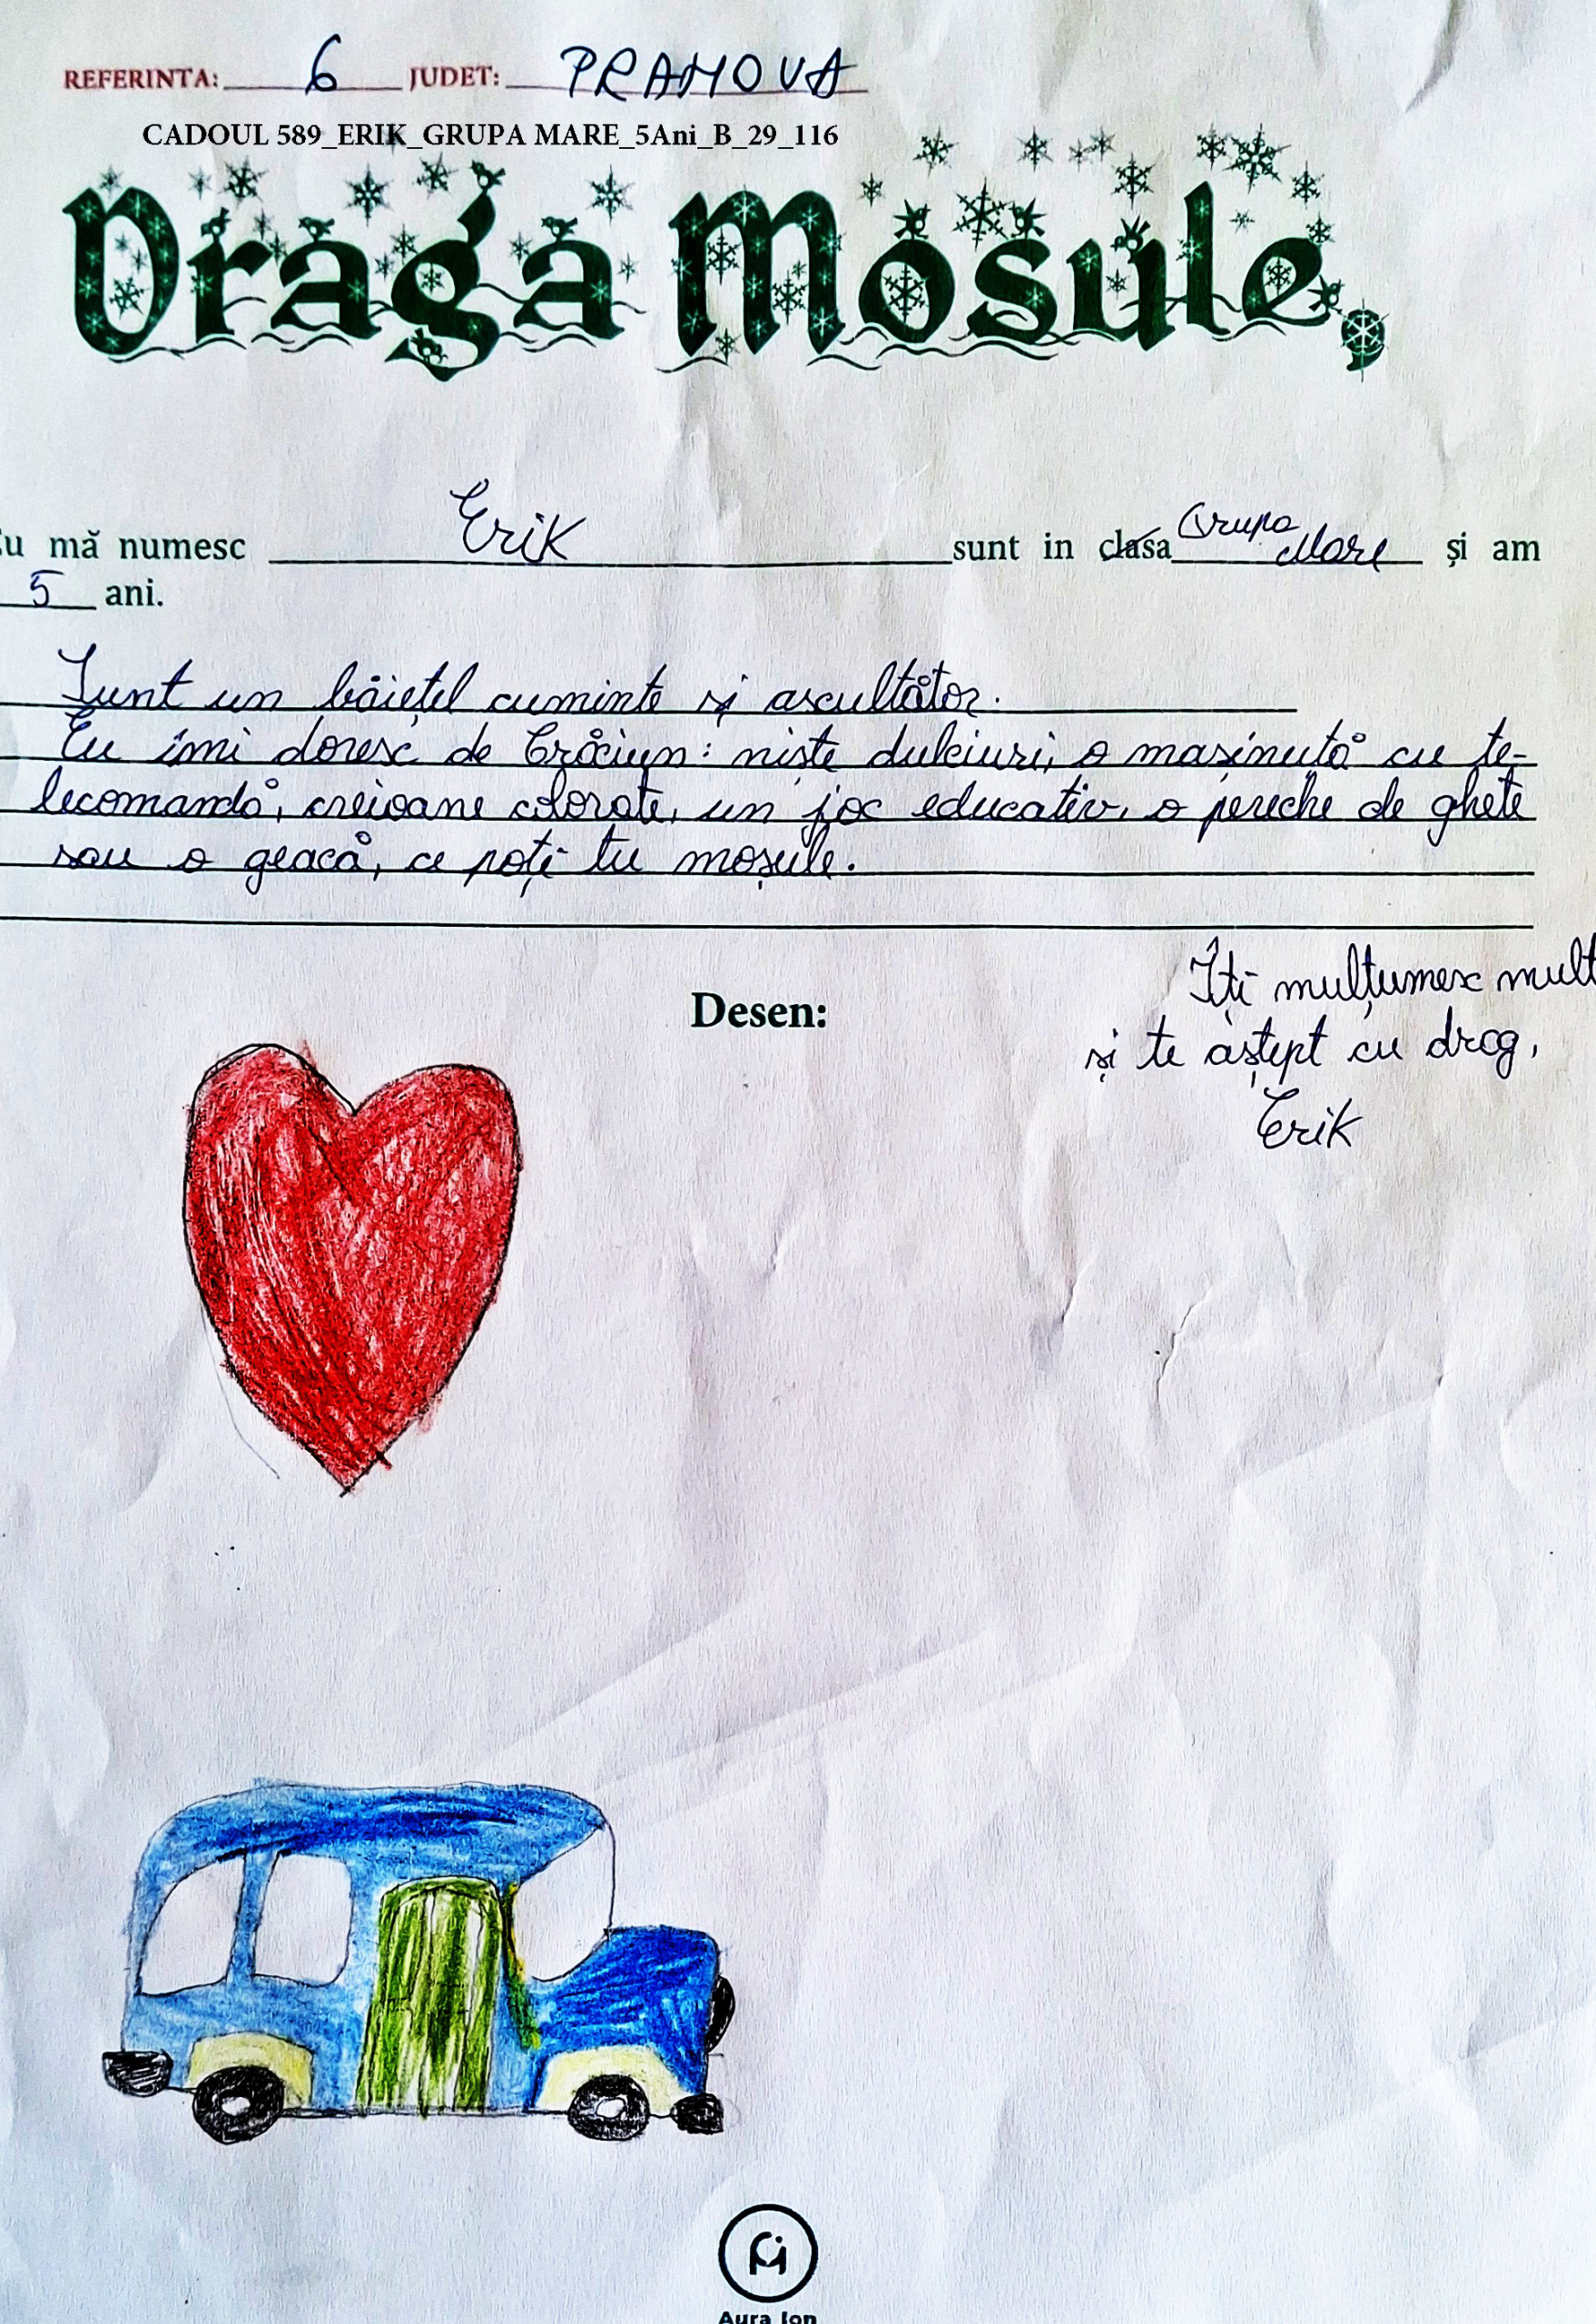 REFERINTA: 6 JUDET: PRAHOVA
CADOUL 589_ERIK_GRUPA MARE_5Ani_B_29_116
Draga Mosule,
Eu mă numesc Erik sunt in clasa Grupa Mare și am
5 ani.
Sunt un băiețel cuminte și ascultător.
Eu îmi doresc de Crăciun: niște dulciuri, o mașinuță cu te-
lecomandă, creioane colorate, un joc educativ, o pereche de ghete
sau o geacă, ce poți tu moșule.
Desen:
Îți mulțumesc mult
și te aștept cu drag,
Erik
Aura Ion